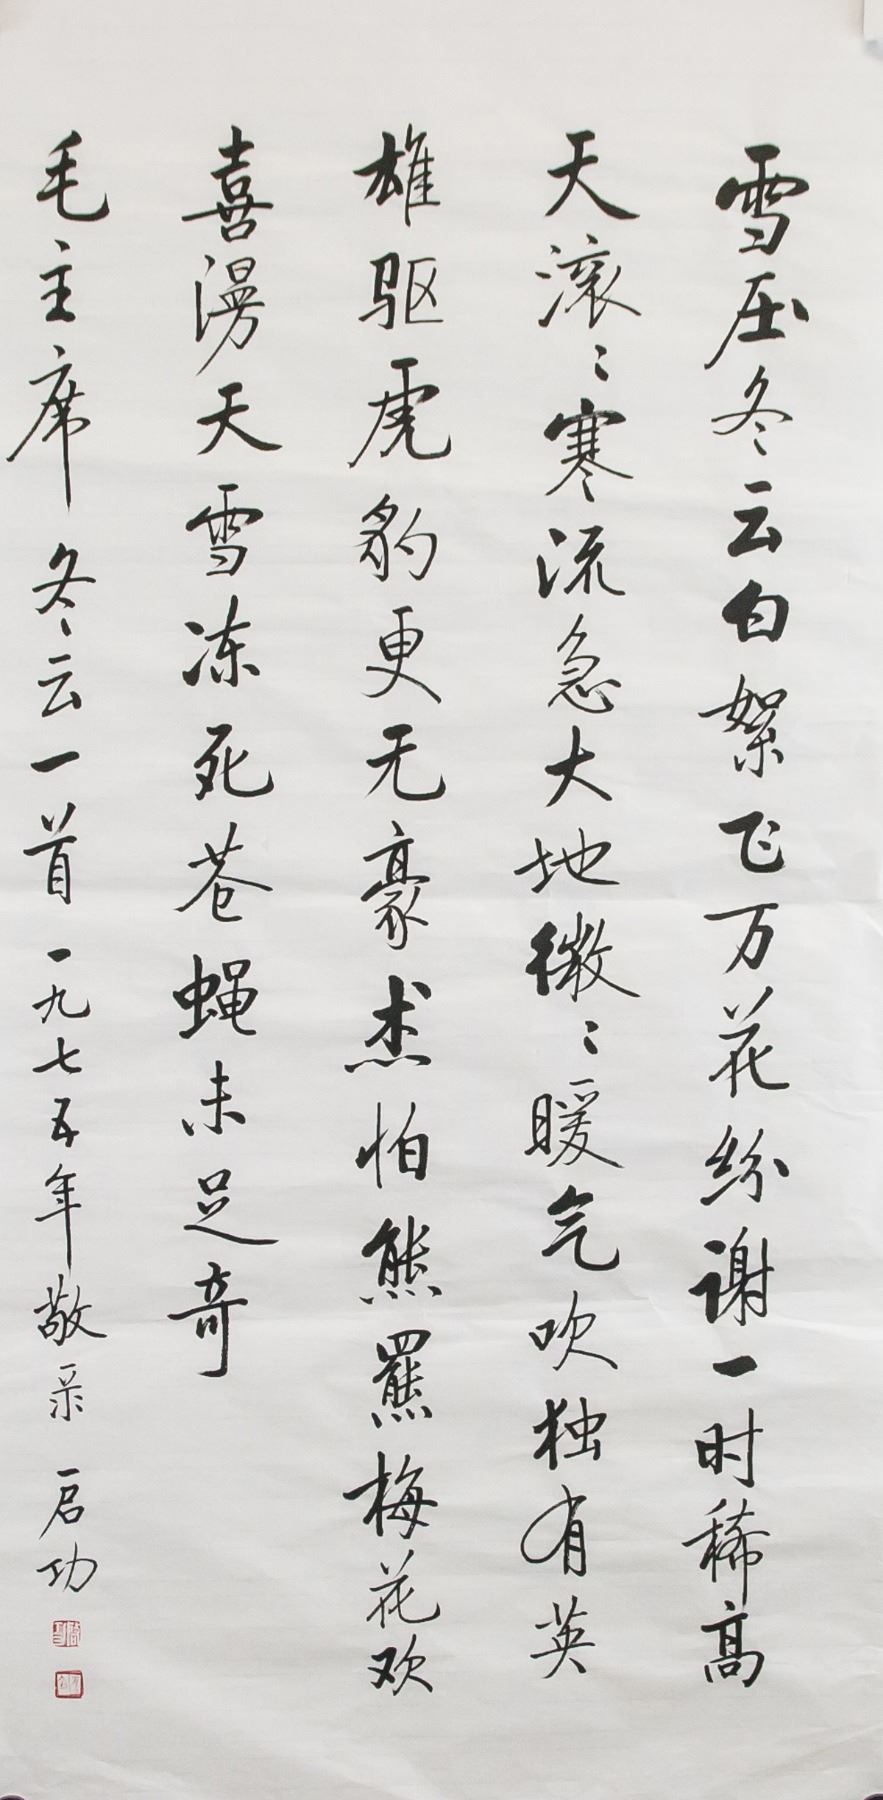 雪压冬云白絮飞万花纷谢一时稀高
天滚〻寒流急大地微〻暖气吹独有英
雄驱虎豹更无豪杰怕熊罴梅花欢
喜漫天雪冻死苍蝇未足奇
毛主席冬云一首一九七五年敬录 启功